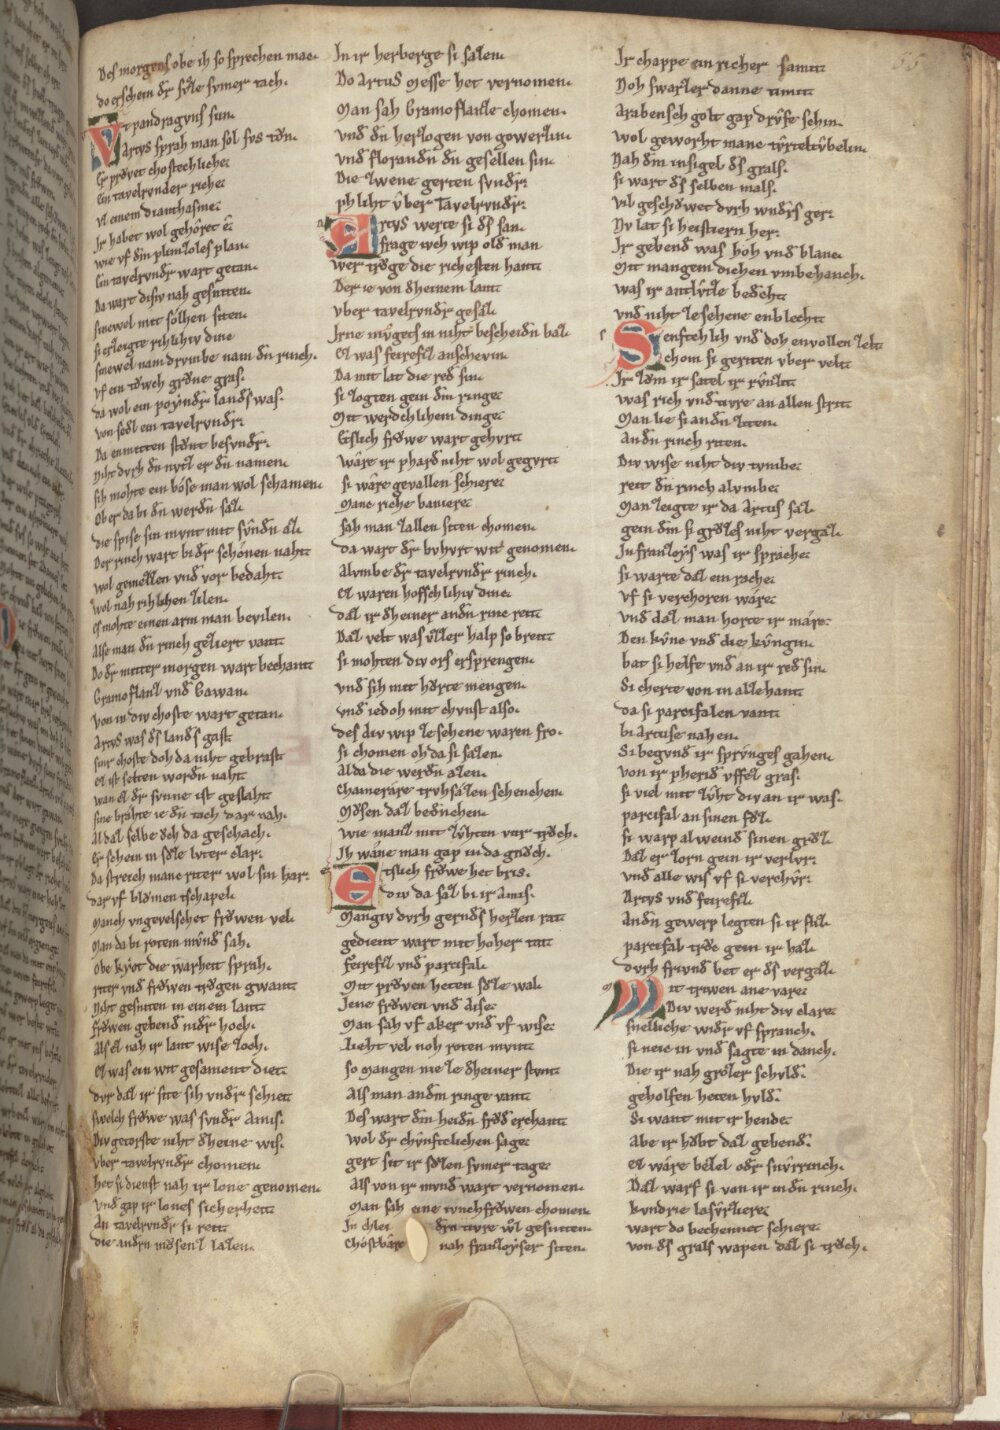 Des morgens obe ih so sprechen mac.
do erschein dr sv̊ze svmer tach.
Vt pandragvns svn.
artvs sprah man sol svs tv̊n.
Er prv̊vet chostechliche.
Ein tavelrvnder riche.
vz einem dianthasme.
Jr habet wol gehôret ê.
wie vf dm plimizoles plan.
Ein tavelrvndr wart getan.
Da wart disiv nah gesniten.
sinewel mit sôlhen siten.
si erzeigte richlichiv dinc
sinewel nam drvmbe nam dn rinch.
vf ein tǒwch grv̊ne gras.
da wol ein poyndr lands was.
von sedl ein tavelrvndr.
Da enmitten stv̊nt besvndr.
Niht dvrh dn nvtz er dn namen.
sih mohte ein bôse man wol schamen.
Ober da bi dn werdn saz.
die spise sin mvnt mit svndn az.
Der rinch wart bi dr schônen naht
wol gemezzen vnd vor bedaht
wol nah richlichen zilen.
es mohte einen arm man bevilen.
Alse man dn rinch geziert vant.
Do dr mitter morgen wart bechant
Gramoflanz vnd Gawan.
von in div choste wart getan.
Artvs was ds lands gast
siner choste doh da niht gebrast
ez ist selten wordn naht
wan ez dr svnne ist geslaht
sine brâhte ie dn tach dar nah.
Al daz selbe ǒch da geschach.
Er schein in sv̊ze lvter clar.
Da streich manc riter wol sin har.
dar vf blv̊men tschapel.
Manch vngevelschet frǒwen vel
Man da bi rotem mvnd sah.
obe kyot die warheit sprah.
riter vnd frǒwen trv̊gen gwant
Niht gesniten in einem lant
frǒwen gebend nidr hoch.
Als ez nah ir lant wise zoch.
ez was ein wit gesament diet.
dvr daz ir site sih vndr schiet
swelch frǒwe was svndr Amis.
Div getorste niht dheine wis.
vber tavelrvndr chomen.
het si dienst nah ir lone genomen.
vnd gap ir lones sicherheit
An tavelrvndr si reit
die andrn mv̊senz lazen.
In ir herberge si sazen.
Do artus Messe het vernomen.
Man sah Gramoflanze chomen.
vnd dn herzogen von gowerzin.
vnd florandn dn gesellen sin.
Die zwene gerten svndr.
phliht vber Tavelrvndr.
Artvs werte si ds san.
frage iwch wip old man
wer trv̊ge die richesten hant
Der ie von dheinem lant
vber tavelrvndr gesaz
Irne mvgets in niht bescheidn baz
ez was feirefiz anschevin.
Da mit lat die red sin.
si zogten gein dm ringe
Mit werdechlichem dinge
Etslich frǒwe wart gehvrt
wâre ir phard niht wol gegvrt
si wâre gevallen schiere
Manc riche baniere
sah man zallen siten chomen.
da wart dr bvhvrt wit genomen.
Alvmbe dr tavelrvndr rinch.
ez waren hoffschlichiv dinc.
daz ir dheiner andn rinc reit
Daz velt was vzzer halp so breit
si mohten div ors ersprengen.
vnd sih mit hv̊rte mengen
vnd iedoh mit chvnst also.
des div wip ze sehene waren fro.
si chomen oh da si sazen.
Alda die werdn azen.
Chamerare trvhsâzen schenchen.
Mv̊sen daz bednchen.
wie manz mit zvhten vvr trv̊ch.
Ih wâne man gap in da gnv̊ch.
Etslich frǒwe het bris.
div da saz bi ir amis.
Mangiv dvrh gernds herzen rat
gedient wart mit hoher tat
feirefiz vnd parcifal
Mit prv̊ven heten sv̊ze wal.
Jene frǒwen vnd dise.
Man sah vf aker vnd vf wise.
Lieht vel noh roten mvnt
so mangen nie ze dheiner stvnt
Als man andm ringe vant.
Des wart dm heidn frǒd erchant
wol dr chvnfteclichen sage
gert sit ir sv̊zen svmer tage
Als von ir mvnd wart vernomen.
Man sah eine ivnchfrǒwen chomen.
In chlei drn tivre wl gesniten.
chostbâre nah franzoyser siten.
Jr chappe ein richer samit
Noh swarzer danne timit
Arabensch golt gap drvfe schin.
wol geworht manc tvrteltvbelin.
Nah dm insigel ds grals.
si wart ds selben mals.
vil geschǒwet dvrh wndrs ger.
Nv lat si heistiern her.
Jr gebend was hoh vnd blanc.
Mit mangem dichen vmbehanch.
was ir antlvtze bedeht
vnd niht ze sehene enblecht.
Senftechlich vnd doh envollen zelt
chom si geriten vber velt.
Ir zǒm ir satel ir rvnzit.
was rich vnd tivre an allen strit
Man lie si andn ziten
Andn rinch riten.
Div wise niht div tvmbe
reit dn rinch alvmbe
Man zeigte ir da Artus saz.
gein dm si grv̊zes niht vergaz.
In franzoys was ir spraches
si warte daz ein rache
vf si verchoren wâre
vnd daz man horte ir mâre.
Den kvnc vnd die kvngin.
bat si helfe vnd an ir red sin.
Si cherte von in alzehant
da si parcifalen vant
bi Artuse nahen.
Si begvnd ir sprvnges gahen.
von ir pherid vffez gras.
si viel mit zvht div an ir was.
parcifal an sinen fv̊z.
si warp al weind sinen grv̊z.
Daz er zorn gein ir verlvr.
vnd alle wis vf si verchvr.
Artvs vnd feirefiz
Andn gewerp legten si ir fliz.
parcifal trv̊c gein ir haz.
dvrh frivnd bet er ds vergaz.
Mit triwen ane vare
Div werd niht div clare
snelliche widr vf spranch.
si neic in vnd sagte in danch.
Die ir nah grozer schvld.
geholfen heten hvld.
Si want mit ir hende
Abe ir hǒbt daz gebend.
ez wâre bezel odr snvrrinch.
Daz warf si von ir indn rinch.
kvndrie lasvrziere
wart do bechennet schiere.
von ds grals wapen daz si trv̊ch.